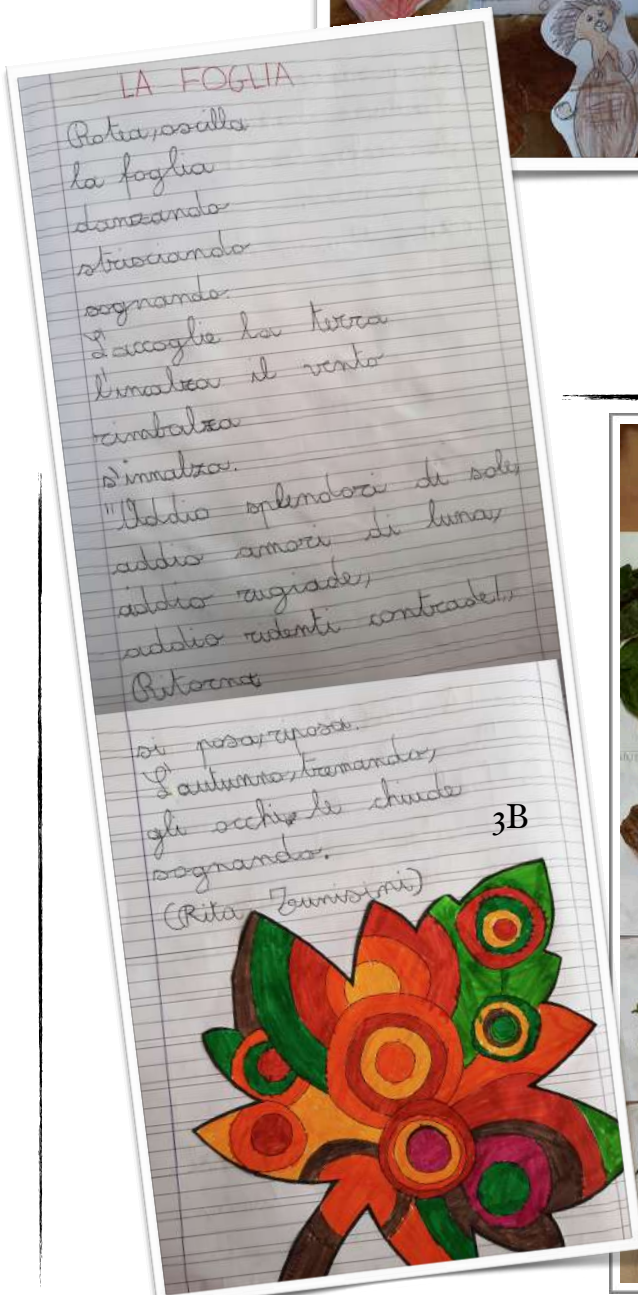 LA FOGLIA
Rotea, oscilla
la foglia
danzando
strisciando
sognando.
L'accoglie la terra
l'incalza il vento
rimbalza
s'innalza.
"Addio splendori di sole,
addio amori di luna,
addio rugiade,
addio ridenti contrade!"
Ritorna
si posa, riposa.
L'autunno, tremando,
gli occhi le chiude
sognando.
(Rita Tunisini)
3B